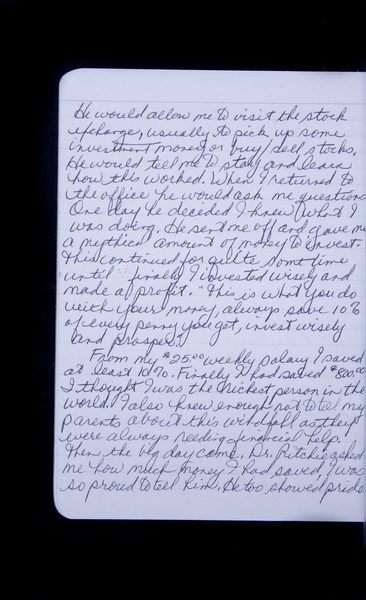 He would allow me to visit the stock
exchange, usually to pick up some
investment money or buy/sell stocks.
He would tell me to stay and learn
how this worked. When I returned to
the office he would ask me questions
One day he decided I knew what I
was doing. He sent me off and gave me
a mythical amount of money to invest.
This continued for quite sometime
until finally I invested wisely and
made a profit. "This is what you do
with your money, always save 10%
of every penny you get, invest wisely
and prosper."
From my $25.00 weekly salary I saved
at least 10%. Finally I had saved $800.00
I thought I was the richest person in the
world. I also knew enough not to tell my
parents about this windfall as they
were always needing financial help.
Then the big day came. Dr. Ritchie asked
me how much money I had saved, I was
so proud to tell him. He too showed pride